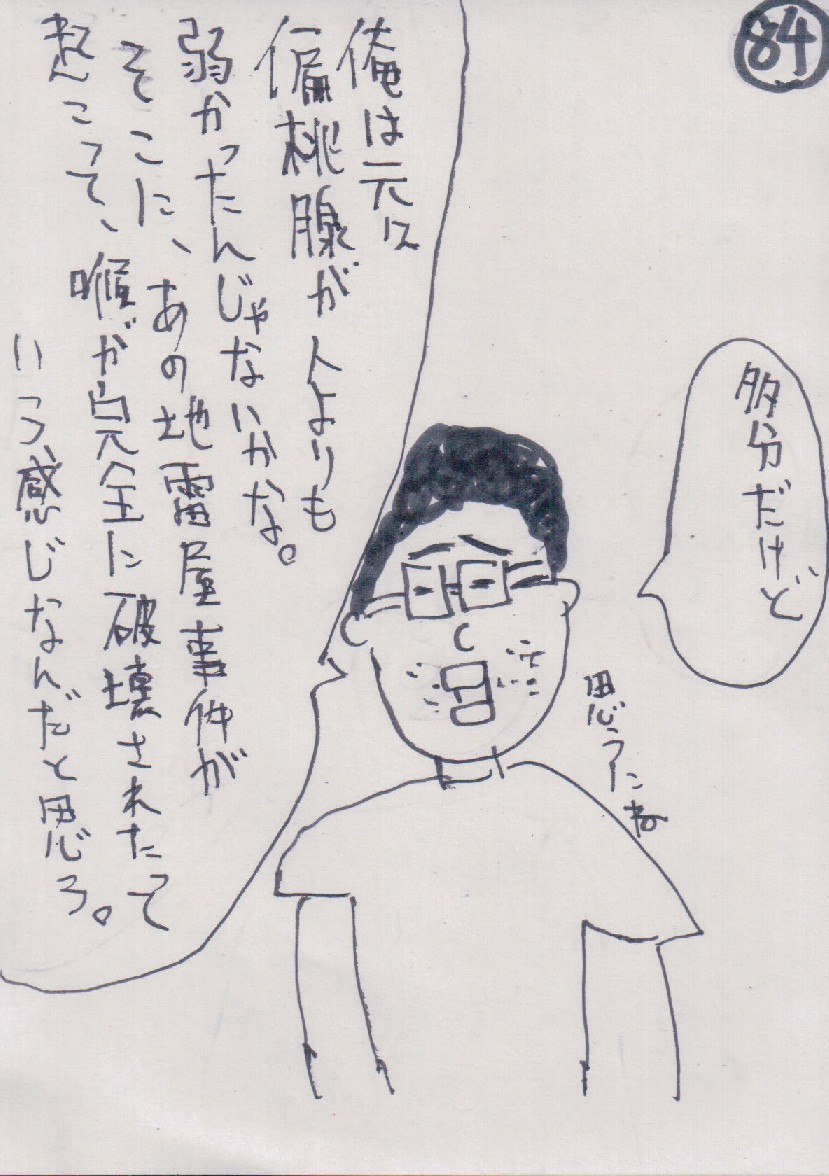 84
多分だけど
俺は元々
偏桃腺が人よりも
弱かったんじゃないかな。
そこに、あの地雷屋事件が
起こって、喉が完全に破壊されたって
いう感じなんだと思う。
思うにね